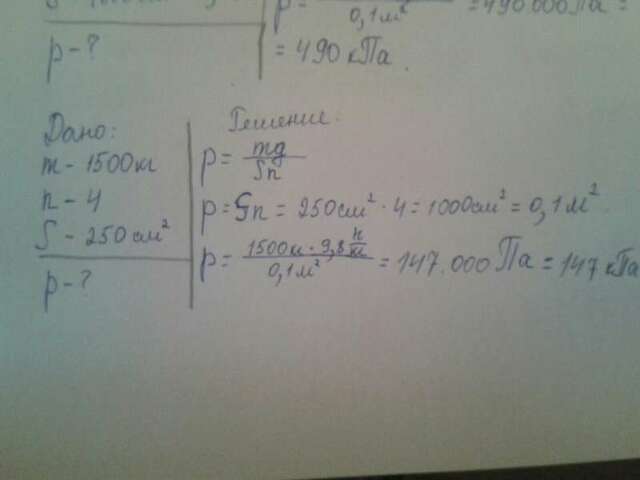 p = 0,1 м² = 490.000 Па =
p - ?
= 490 кПа.
Дано:
m - 1500 кг
n - 4
S - 250 см²
p - ?
Решение:
p = mg / Sn
p = Sn = 250 см² · 4 = 1000 см² = 0,1 м²
p = 1500 кг · 9,8 н/кг / 0,1 м² = 147.000 Па = 147 кПа